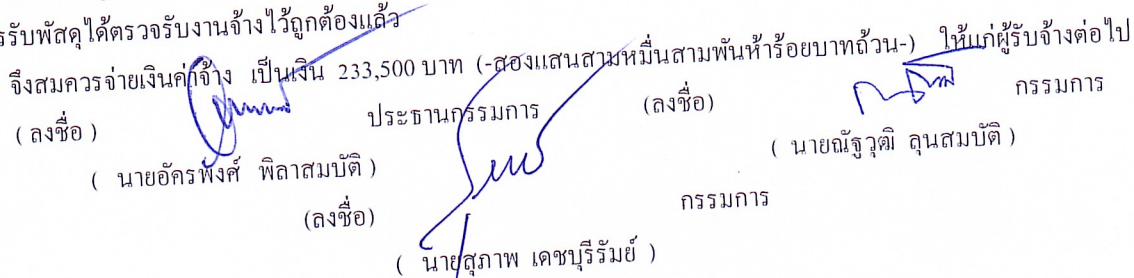 รรับพัสดุได้ตรวจรับงานจ้างไว้ถูกต้องแล้ว
จึงสมควรจ่ายเงินค่าจ้าง เป็นเงิน 233,500 บาท (-สองแสนสามหมื่นสามพันห้าร้อยบาทถ้วน-) ให้แก่ผู้รับจ้างต่อไป
( ลงชื่อ ) ประธานกรรมการ (ลงชื่อ) กรรมการ
( นายอัครพังศ์ พิลาสมบัติ ) ( นายณัฐวุฒิ ลุนสมบัติ )
(ลงชื่อ) กรรมการ
( นายสุภาพ เดชบุรีรัมย์ )